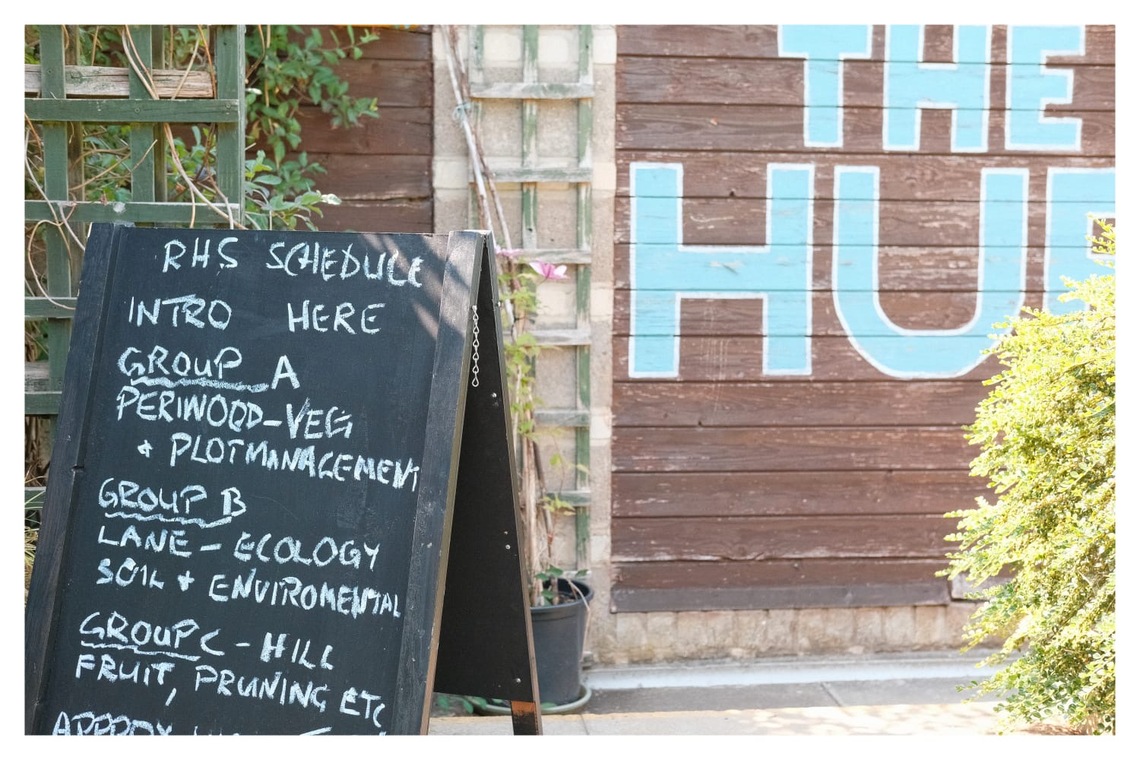 RHS SCHEDULE
INTRO HERE
GROUP A
PERIWOOD-VEG
& PLOT MANAGEMENT
GROUP B
LANE - ECOLOGY
SOIL & ENVIROMENTAL
GROUP C - HILL
FRUIT, PRUNING ETC
APPROX
THE
HUB